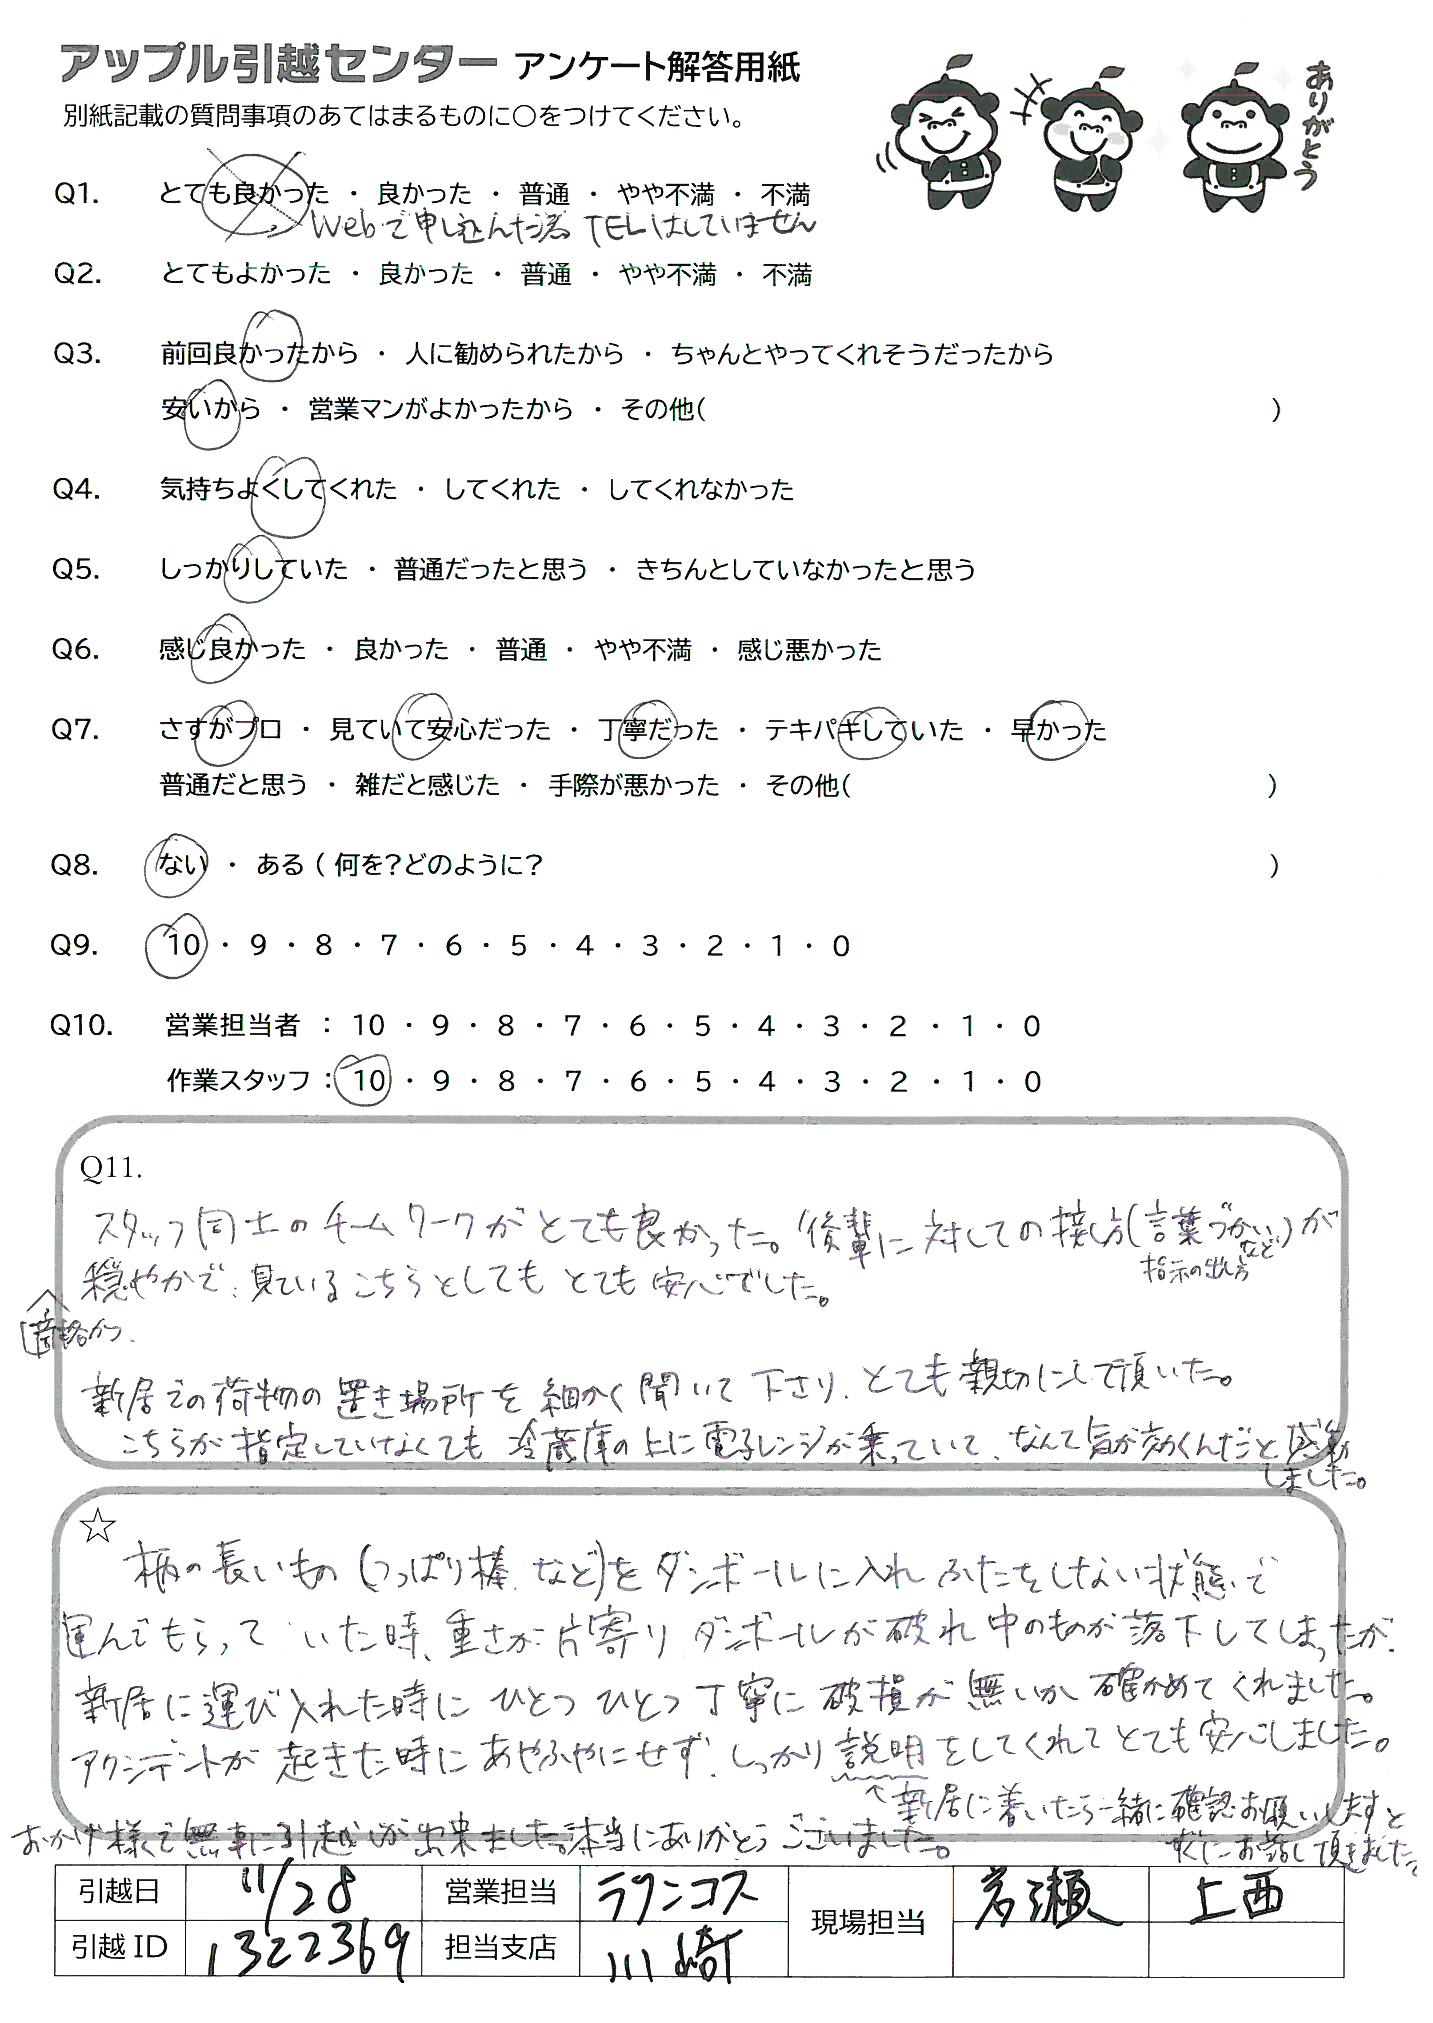 アップル引越センター アンケート解答用紙
別紙記載の質問事項のあてはまるものに○をつけてください。
ありがとう
Q1. とても良かった ・ 良かった ・ 普通 ・ やや不満 ・ 不満
Webで申し込んだ為 TELはしていません
Q2. とてもよかった ・ 良かった ・ 普通 ・ やや不満 ・ 不満
Q3. 前回良かったから ・ 人に勧められたから ・ ちゃんとやってくれそうだったから
安いから ・ 営業マンがよかったから ・ その他( )
Q4. 気持ちよくしてくれた ・ してくれた ・ してくれなかった
Q5. しっかりしていた ・ 普通だったと思う ・ きちんとしていなかったと思う
Q6. 感じ良かった ・ 良かった ・ 普通 ・ やや不満 ・ 感じ悪かった
Q7. さすがプロ ・ 見ていて安心だった ・ 丁寧だった ・ テキパキしていた ・ 早かった
普通だと思う ・ 雑だと感じた ・ 手際が悪かった ・ その他( )
Q8. ない ・ ある ( 何を?どのように? )
Q9. 10 ・ 9 ・ 8 ・ 7 ・ 6 ・ 5 ・ 4 ・ 3 ・ 2 ・ 1 ・ 0
Q10. 営業担当者 : 10 ・ 9 ・ 8 ・ 7 ・ 6 ・ 5 ・ 4 ・ 3 ・ 2 ・ 1 ・ 0
作業スタッフ : 10 ・ 9 ・ 8 ・ 7 ・ 6 ・ 5 ・ 4 ・ 3 ・ 2 ・ 1 ・ 0
Q11.
スタッフ同士のチームワークがとても良かった。後輩に対しての接し方(言葉づかい)が
指示の出し方など
穏やかで、見ているこちらとしてもとても安心でした。
新居での荷物の置き場所を細かく聞いて下さり、とても親切にして頂いた。
こちらが指定していなくても冷蔵庫の上に電子レンジが乗っていて、なんて気が効くんだと感動
しました。
☆
柄の長いもの (つっぱり棒など)をダンボールに入れふたをしない状態で
運んでもらっていた時、重さが片寄りダンボールが破れ中のものが落下してしまったが、
新居に運び入れた時にひとつひとつ丁寧に破損が無いか確かめてくれました。
アクシデントが起きた時にあやふやにせず、しっかり説明をしてくれてとても安心しました。
↑新居に着いたら一緒に確認お願いしますと
すぐにお話し頂きました。
おかげ様で無事に引越しが出来ました。本当にありがとうございました。
引越日 11/28 営業担当 ラクンコス 現場担当 岩瀬 上西
引越ID 1322369 担当支店 川崎